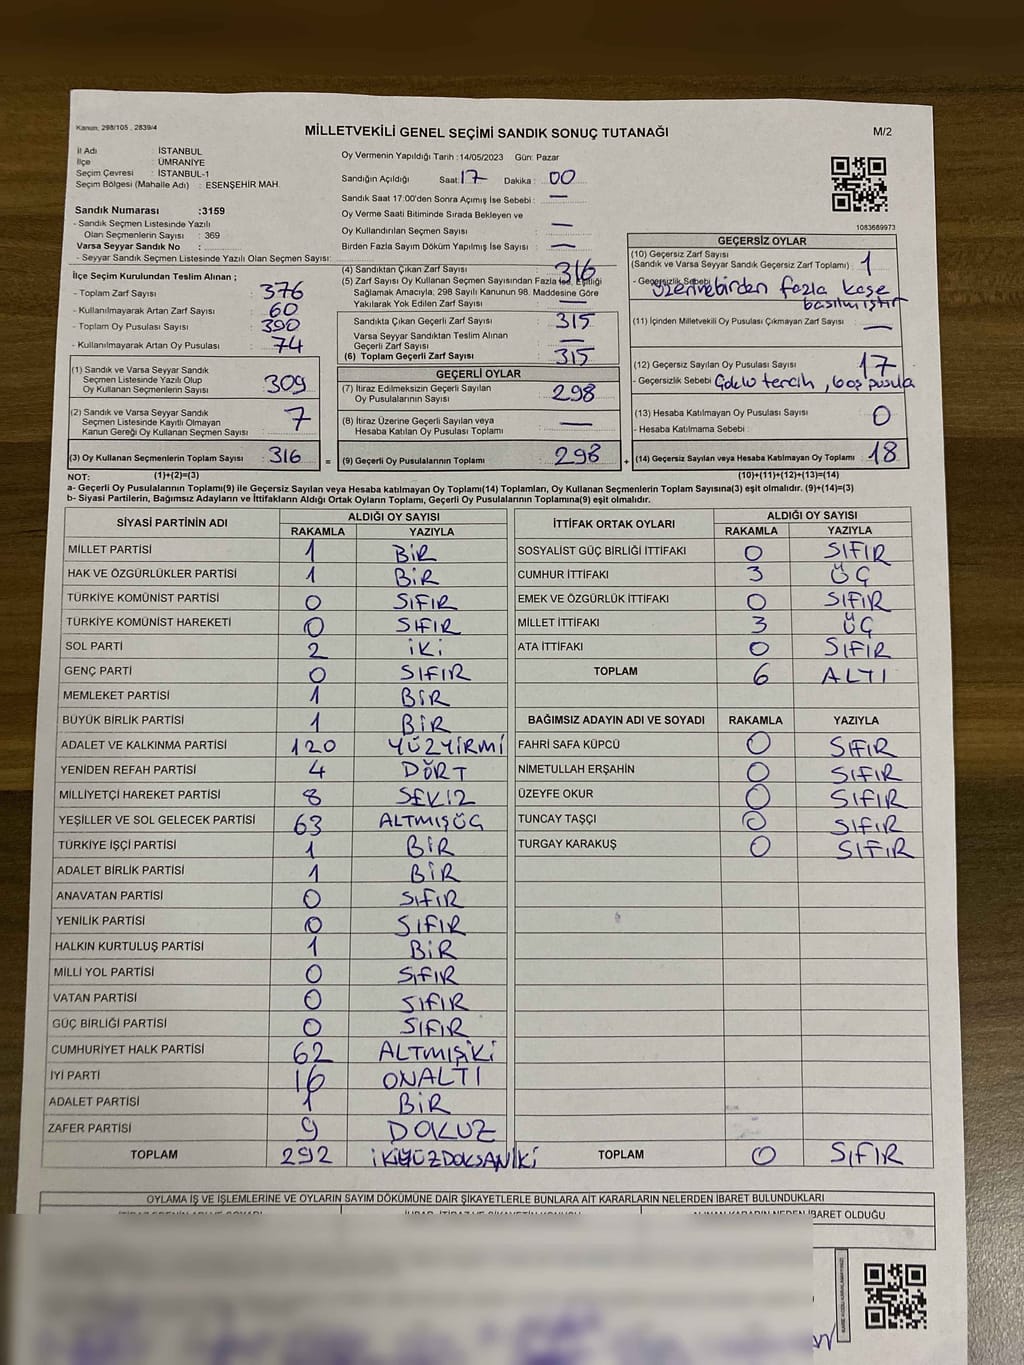 Kanun: 298/105 , 2839/4
MİLLETVEKİLİ GENEL SEÇİMİ SANDIK SONUÇ TUTANAĞI
M/2
İl Adı : İSTANBUL
İlçe : ÜMRANİYE
Seçim Çevresi : İSTANBUL-1
Seçim Bölgesi (Mahalle Adı) : ESENŞEHİR MAH.
Sandık Numarası :3159
- Sandık Seçmen Listesinde Yazılı
Olan Seçmenlerin Sayısı : 369
Varsa Seyyar Sandık No :
- Seyyar Sandık Seçmen Listesinde Yazılı Olan Seçmen Sayısı:
Oy Vermenin Yapıldığı Tarih :14/05/2023 Gün: Pazar
Sandığın Açıldığı Saat: 17 Dakika : 00
Sandık Saat 17:00'den Sonra Açımış İse Sebebi : —
Oy Verme Saati Bitiminde Sırada Bekleyen ve
Oy Kullandırılan Seçmen Sayısı : —
Birden Fazla Sayım Döküm Yapılmış İse Sayısı : —
1083689973
İlçe Seçim Kurulundan Teslim Alınan ;
- Toplam Zarf Sayısı : 376
- Kullanılmayarak Artan Zarf Sayısı : 60
- Toplam Oy Pusulası Sayısı : 390
- Kullanılmayarak Artan Oy Pusulası : 74
(1) Sandık ve Varsa Seyyar Sandık
Seçmen Listesinde Yazılı Olup
Oy Kullanan Seçmenlerin Sayısı : 309
(2) Sandık ve Varsa Seyyar Sandık
Seçmen Listesinde Kayıtlı Olmayan
Kanun Gereği Oy Kullanan Seçmen Sayısı : 7
(3) Oy Kullanan Seçmenlerin Toplam Sayısı : 316 =
(4) Sandıktan Çıkan Zarf Sayısı : 316
(5) Zarf Sayısı Oy Kullanan Seçmen Sayısından Fazla İse, Eşitliği
Sağlamak Amacıyla, 298 Sayılı Kanunun 98. Maddesine Göre
Yakılarak Yok Edilen Zarf Sayısı : —
Sandıkta Çıkan Geçerli Zarf Sayısı : 315
Varsa Seyyar Sandıktan Teslim Alınan
Geçerli Zarf Sayısı : —
(6) Toplam Geçerli Zarf Sayısı : 315
GEÇERLİ OYLAR
(7) İtiraz Edilmeksizin Geçerli Sayılan
Oy Pusulalarının Sayısı : 298
(8) İtiraz Üzerine Geçerli Sayılan veya
Hesaba Katılan Oy Pusulası Toplamı : —
(9) Geçerli Oy Pusulalarının Toplamı : 298 +
GEÇERSİZ OYLAR
(10) Geçersiz Zarf Sayısı
(Sandık ve Varsa Seyyar Sandık Geçersiz Zarf Toplamı) : 1
- Geçersizlik Sebebi : üzerine birden fazla kaşe
basılmıştır
(11) İçinden Milletvekili Oy Pusulası Çıkmayan Zarf Sayısı : —
(12) Geçersiz Sayılan Oy Pusulası Sayısı : 17
- Geçersizlik Sebebi : Çoklu tercih , boş pusula
(13) Hesaba Katılmayan Oy Pusulası Sayısı : 0
- Hesaba Katılmama Sebebi :
(14) Geçersiz Sayılan veya Hesaba Katılmayan Oy Toplamı : 18
NOT: (1)+(2)=(3) (10)+(11)+(12)+(13)=(14)
a- Geçerli Oy Pusulalarının Toplamı(9) ile Geçersiz Sayılan veya Hesaba katılmayan Oy Toplamı(14) Toplamları, Oy Kullanan Seçmenlerin Toplam Sayısına(3) eşit olmalıdır. (9)+(14)=(3)
b- Siyasi Partilerin, Bağımsız Adayların ve İttifakların Aldığı Ortak Oyların Toplamı, Geçerli Oy Pusulalarının Toplamına(9) eşit olmalıdır.
SİYASİ PARTİNİN ADI ALDIĞI OY SAYISI
RAKAMLA YAZIYLA
MİLLET PARTİSİ 1 BİR
HAK VE ÖZGÜRLÜKLER PARTİSİ 1 BİR
TÜRKİYE KOMÜNİST PARTİSİ 0 SIFIR
TÜRKİYE KOMÜNİST HAREKETİ 0 SIFIR
SOL PARTİ 2 İKİ
GENÇ PARTİ 0 SIFIR
MEMLEKET PARTİSİ 1 BİR
BÜYÜK BİRLİK PARTİSİ 1 BİR
ADALET VE KALKINMA PARTİSİ 120 YÜZYİRMİ
YENİDEN REFAH PARTİSİ 4 DÖRT
MİLLİYETÇİ HAREKET PARTİSİ 8 SEKİZ
YEŞİLLER VE SOL GELECEK PARTİSİ 63 ALTMIŞÜÇ
TÜRKİYE İŞÇİ PARTİSİ 1 BİR
ADALET BİRLİK PARTİSİ 1 BİR
ANAVATAN PARTİSİ 0 SIFIR
YENİLİK PARTİSİ 0 SIFIR
HALKIN KURTULUŞ PARTİSİ 1 BİR
MİLLİ YOL PARTİSİ 0 SIFIR
VATAN PARTİSİ 0 SIFIR
GÜÇ BİRLİĞİ PARTİSİ 0 SIFIR
CUMHURİYET HALK PARTİSİ 62 ALTMIŞİKİ
İYİ PARTİ 16 ONALTI
ADALET PARTİSİ 1 BİR
ZAFER PARTİSİ 9 DOKUZ
TOPLAM 292 İKİYÜZDOKSANİKİ
İTTİFAK ORTAK OYLARI ALDIĞI OY SAYISI
RAKAMLA YAZIYLA
SOSYALİST GÜÇ BİRLİĞİ İTTİFAKI 0 SIFIR
CUMHUR İTTİFAKI 3 ÜÇ
EMEK VE ÖZGÜRLÜK İTTİFAKI 0 SIFIR
MİLLET İTTİFAKI 3 ÜÇ
ATA İTTİFAKI 0 SIFIR
TOPLAM 6 ALTI
BAĞIMSIZ ADAYIN ADI VE SOYADI RAKAMLA YAZIYLA
FAHRİ SAFA KÜPCÜ 0 SIFIR
NİMETULLAH ERŞAHİN 0 SIFIR
ÜZEYFE OKUR 0 SIFIR
TUNCAY TAŞÇI 0 SIFIR
TURGAY KARAKUŞ 0 SIFIR
TOPLAM 0 SIFIR
OYLAMA İŞ VE İŞLEMLERİNE VE OYLARIN SAYIM DÖKÜMÜNE DAİR ŞİKAYETLERLE BUNLARA AİT KARARLARIN NELERDEN İBARET BULUNDUKLARI